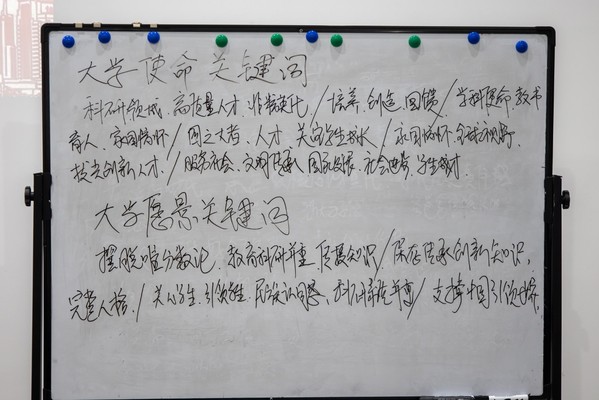 大学使命关键词
科研领域、高质量人才、/培养、创造、回馈/学科使命、教书
育人、家国情怀/国之大者、人才、关心学生成长/家国情怀、全球视野、
拔尖创新人才/服务社会、文明传承、国家发展、社会思考、学生成才.
大学愿景关键词
摆脱唯分数论、教育科研并重、传播知识/保存传承创新知识、
完整人格、/关心学生、引领学生、民族认同感、并重/支撑中国引领